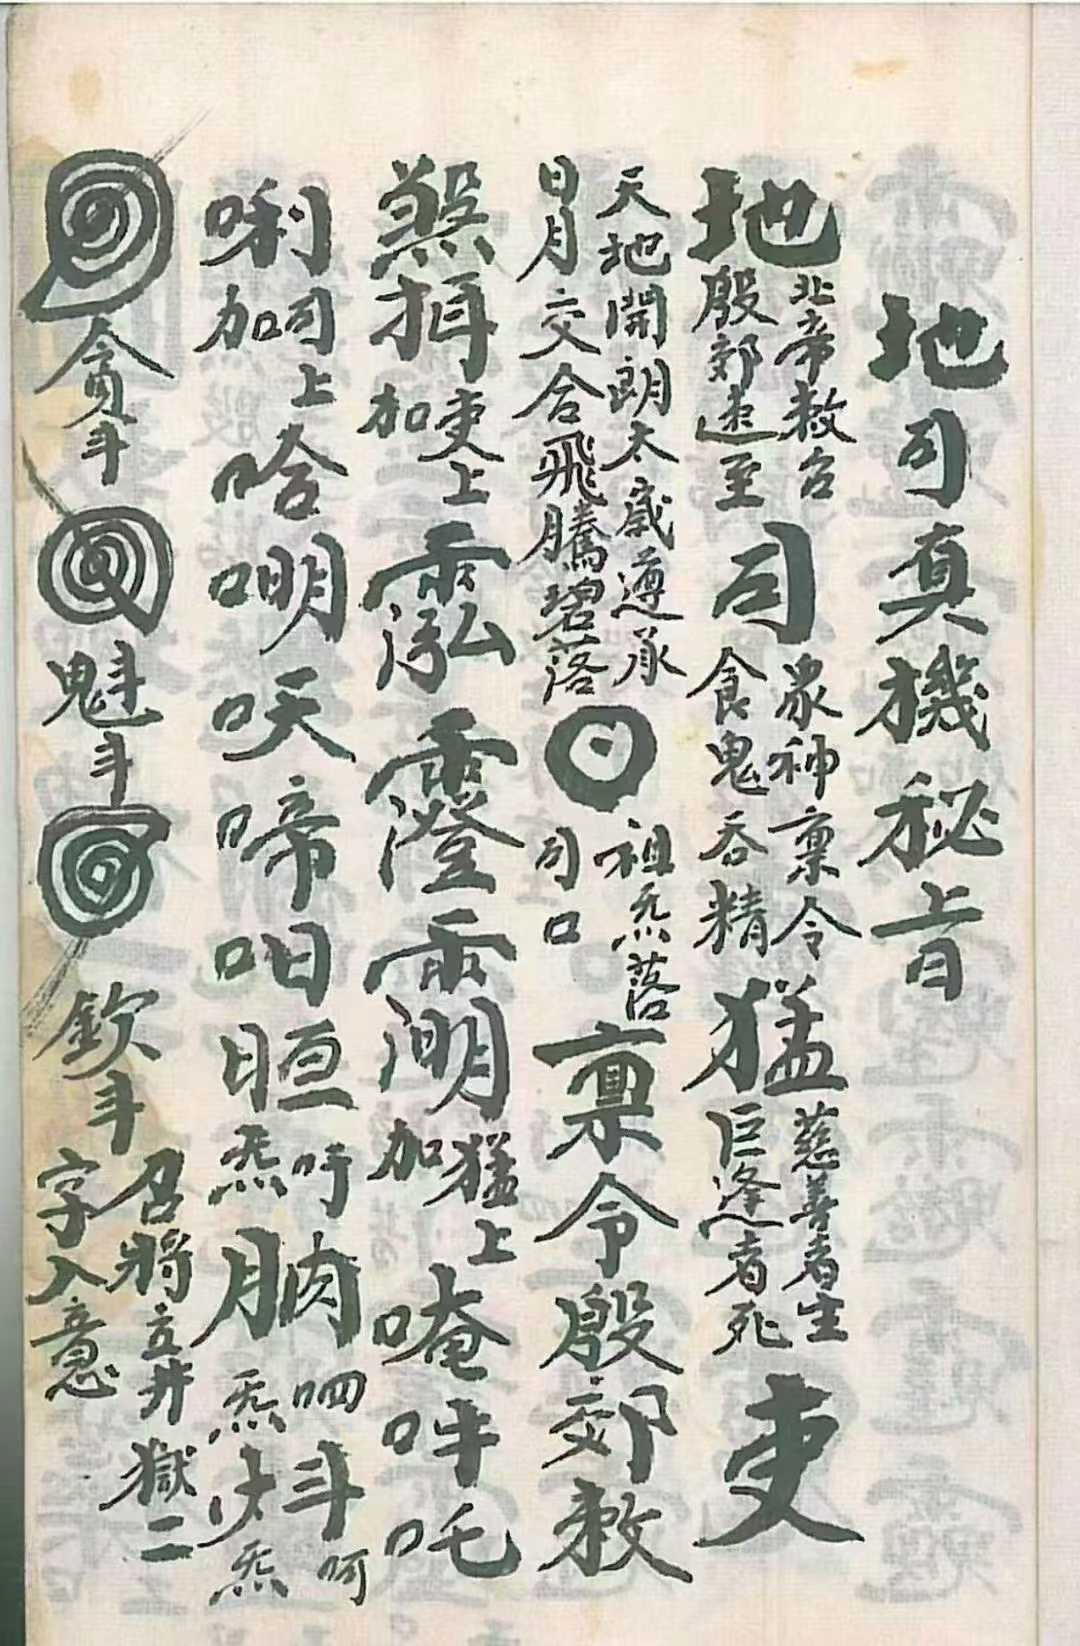 地司真機秘旨
地 北帝敕召
殷郊速至 司 眾神稟令
食鬼吞精 猛 慈善者生
巨逢者死 吏
天地開朗太歲遵承
日月交合飛騰碧落
祖炁落
司口 稟令殷郊敕
煞 加吏上
加猛上 唵吽吒
唎 加司上 哈
𠯈啼呾 吽炁 呬炁斗呵炁
貪斗 魁斗 欽斗 召將立井獄二
字入意